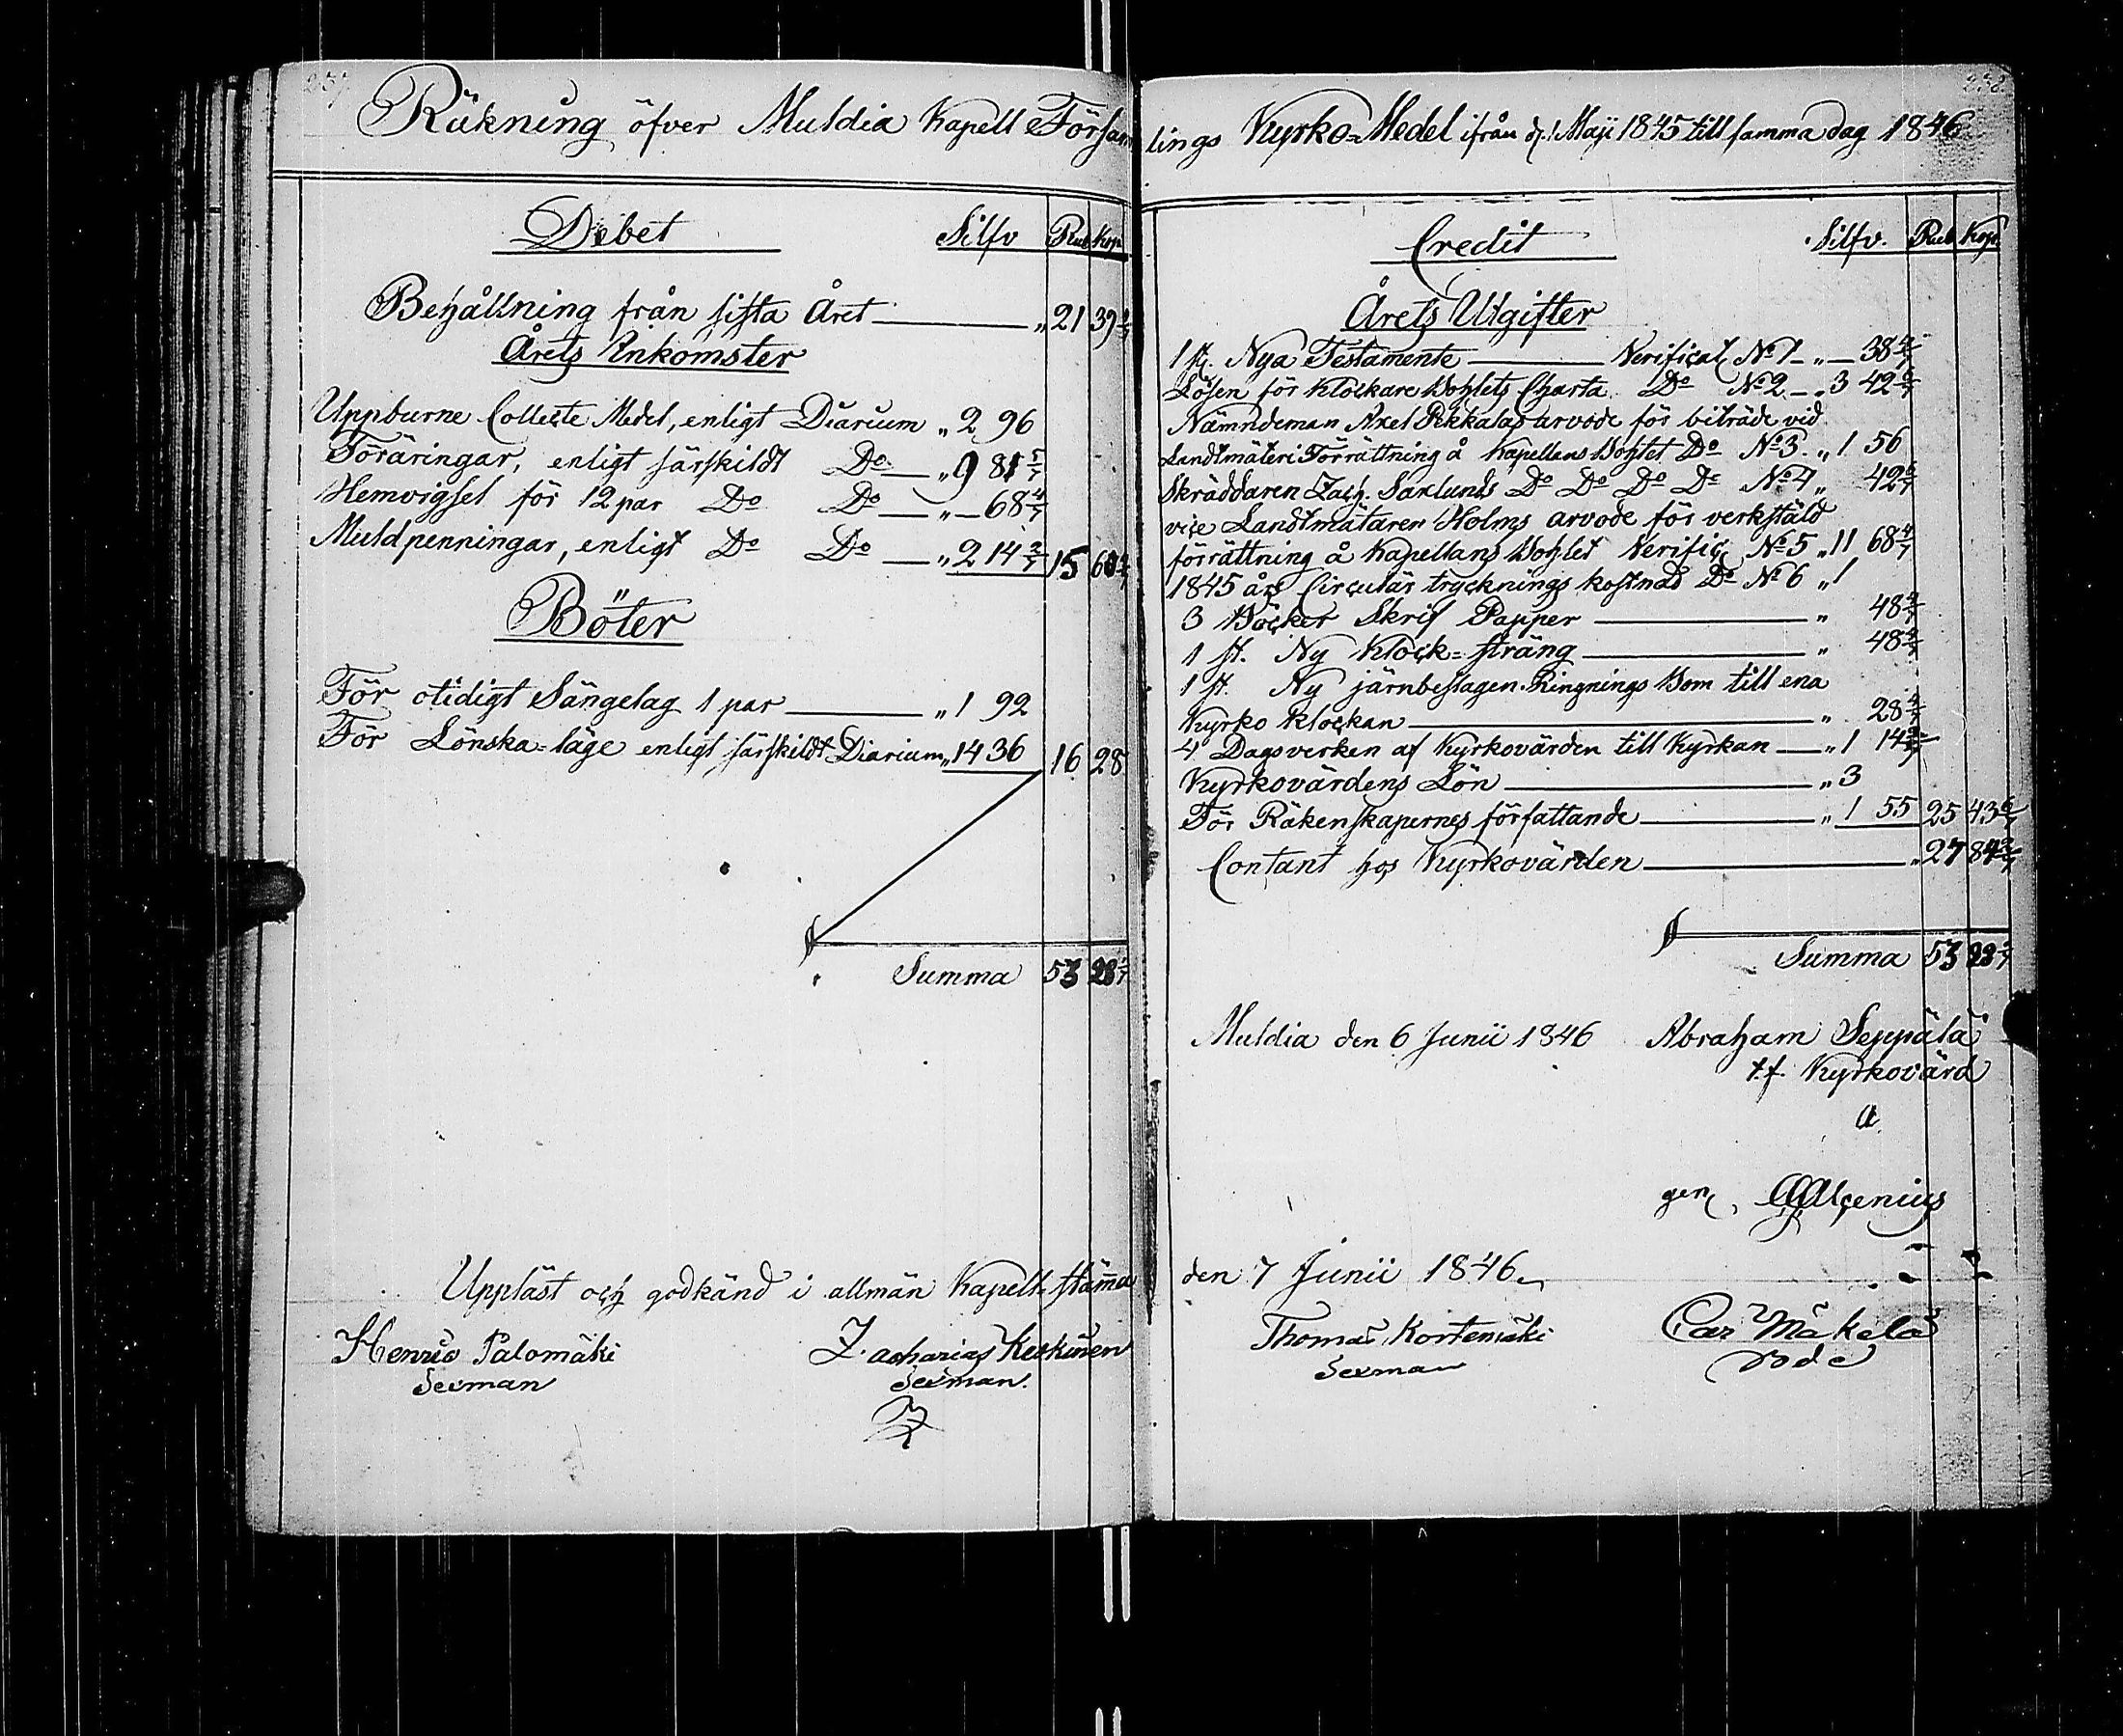 237.
Räkning öfver Muldia Kapell Försam
Debet Silfv Rub Kop
Behållning från sista Året „ 21 39 3/7
Årets Inkomster
Uppburne Collecte Medel, enligt Diarium „ 2 96
Föräringar, enligt särskildt Do „ 9 81 5/7
Hemvigsel för 12 par Do Do „ — 68 4/7
Muldpenningar, enligt Do Do „ 2 14 2/7 15 60 4/7
Böter
För otidigt Sängelag 1 par „ 1 92
För Lönska-läge enligt särskildt Diarium „ 14 36 16 28
Summa 53 28
Uppläst och godkänd i allmän Kapell-stämma
Henric Palomäki
Sexman
Zacharias Keskinen
Sexman.
238
lings Kyrko-Medel ifrån d. 1 Maji 1845 till samma dag 1846
Credit Silfv. Rub Kop
Årets Utgifter
1 st. Nya Testamente Verificat No 1 „ — 38 4/7
Lösen för Klockare Bohlets Charta Do No 2 „ 3 42 6/7
Nämndeman Axel Pekkalas arvode för biträde vid
Landtmäteri Förrättning å Kapellans Bohlet Do No 3. „ 1 56
Skräddaren Zach. Saxlunds Do Do Do Do No 4 „ 42 6/7
vice Landtmätaren Holms arvode för verkstäld
förrättning å Kapellans Bohlet Verific No 5 „ 11 68 4/7
1845 års Circulär trycknings kostnad Do No 6 „ 1
3 Böcker Skrif Papper „ 48
1 st. Ny Klock-sträng „ 48
1 st. Ny järnbeslagen Ringnings Bom till ena
Kyrko klockan „ 28 4/7
4 Dagsverken af Kyrkovärden till Kyrkan „ 1 14 2/7
Kyrkovärdens Lön „ 3
För Räkenskapernes författande „ 1 55 25 43 6/7
Contant hos Kyrkovärden „ 27 84
Summa 53 28
Muldia den 6 Junii 1846 Abraham Seppälä
t.f. Kyrkovärd
gen Alcenius
den 7 Junii 1846
Thomas Kortemäki
Sexman
Car Mäkelä